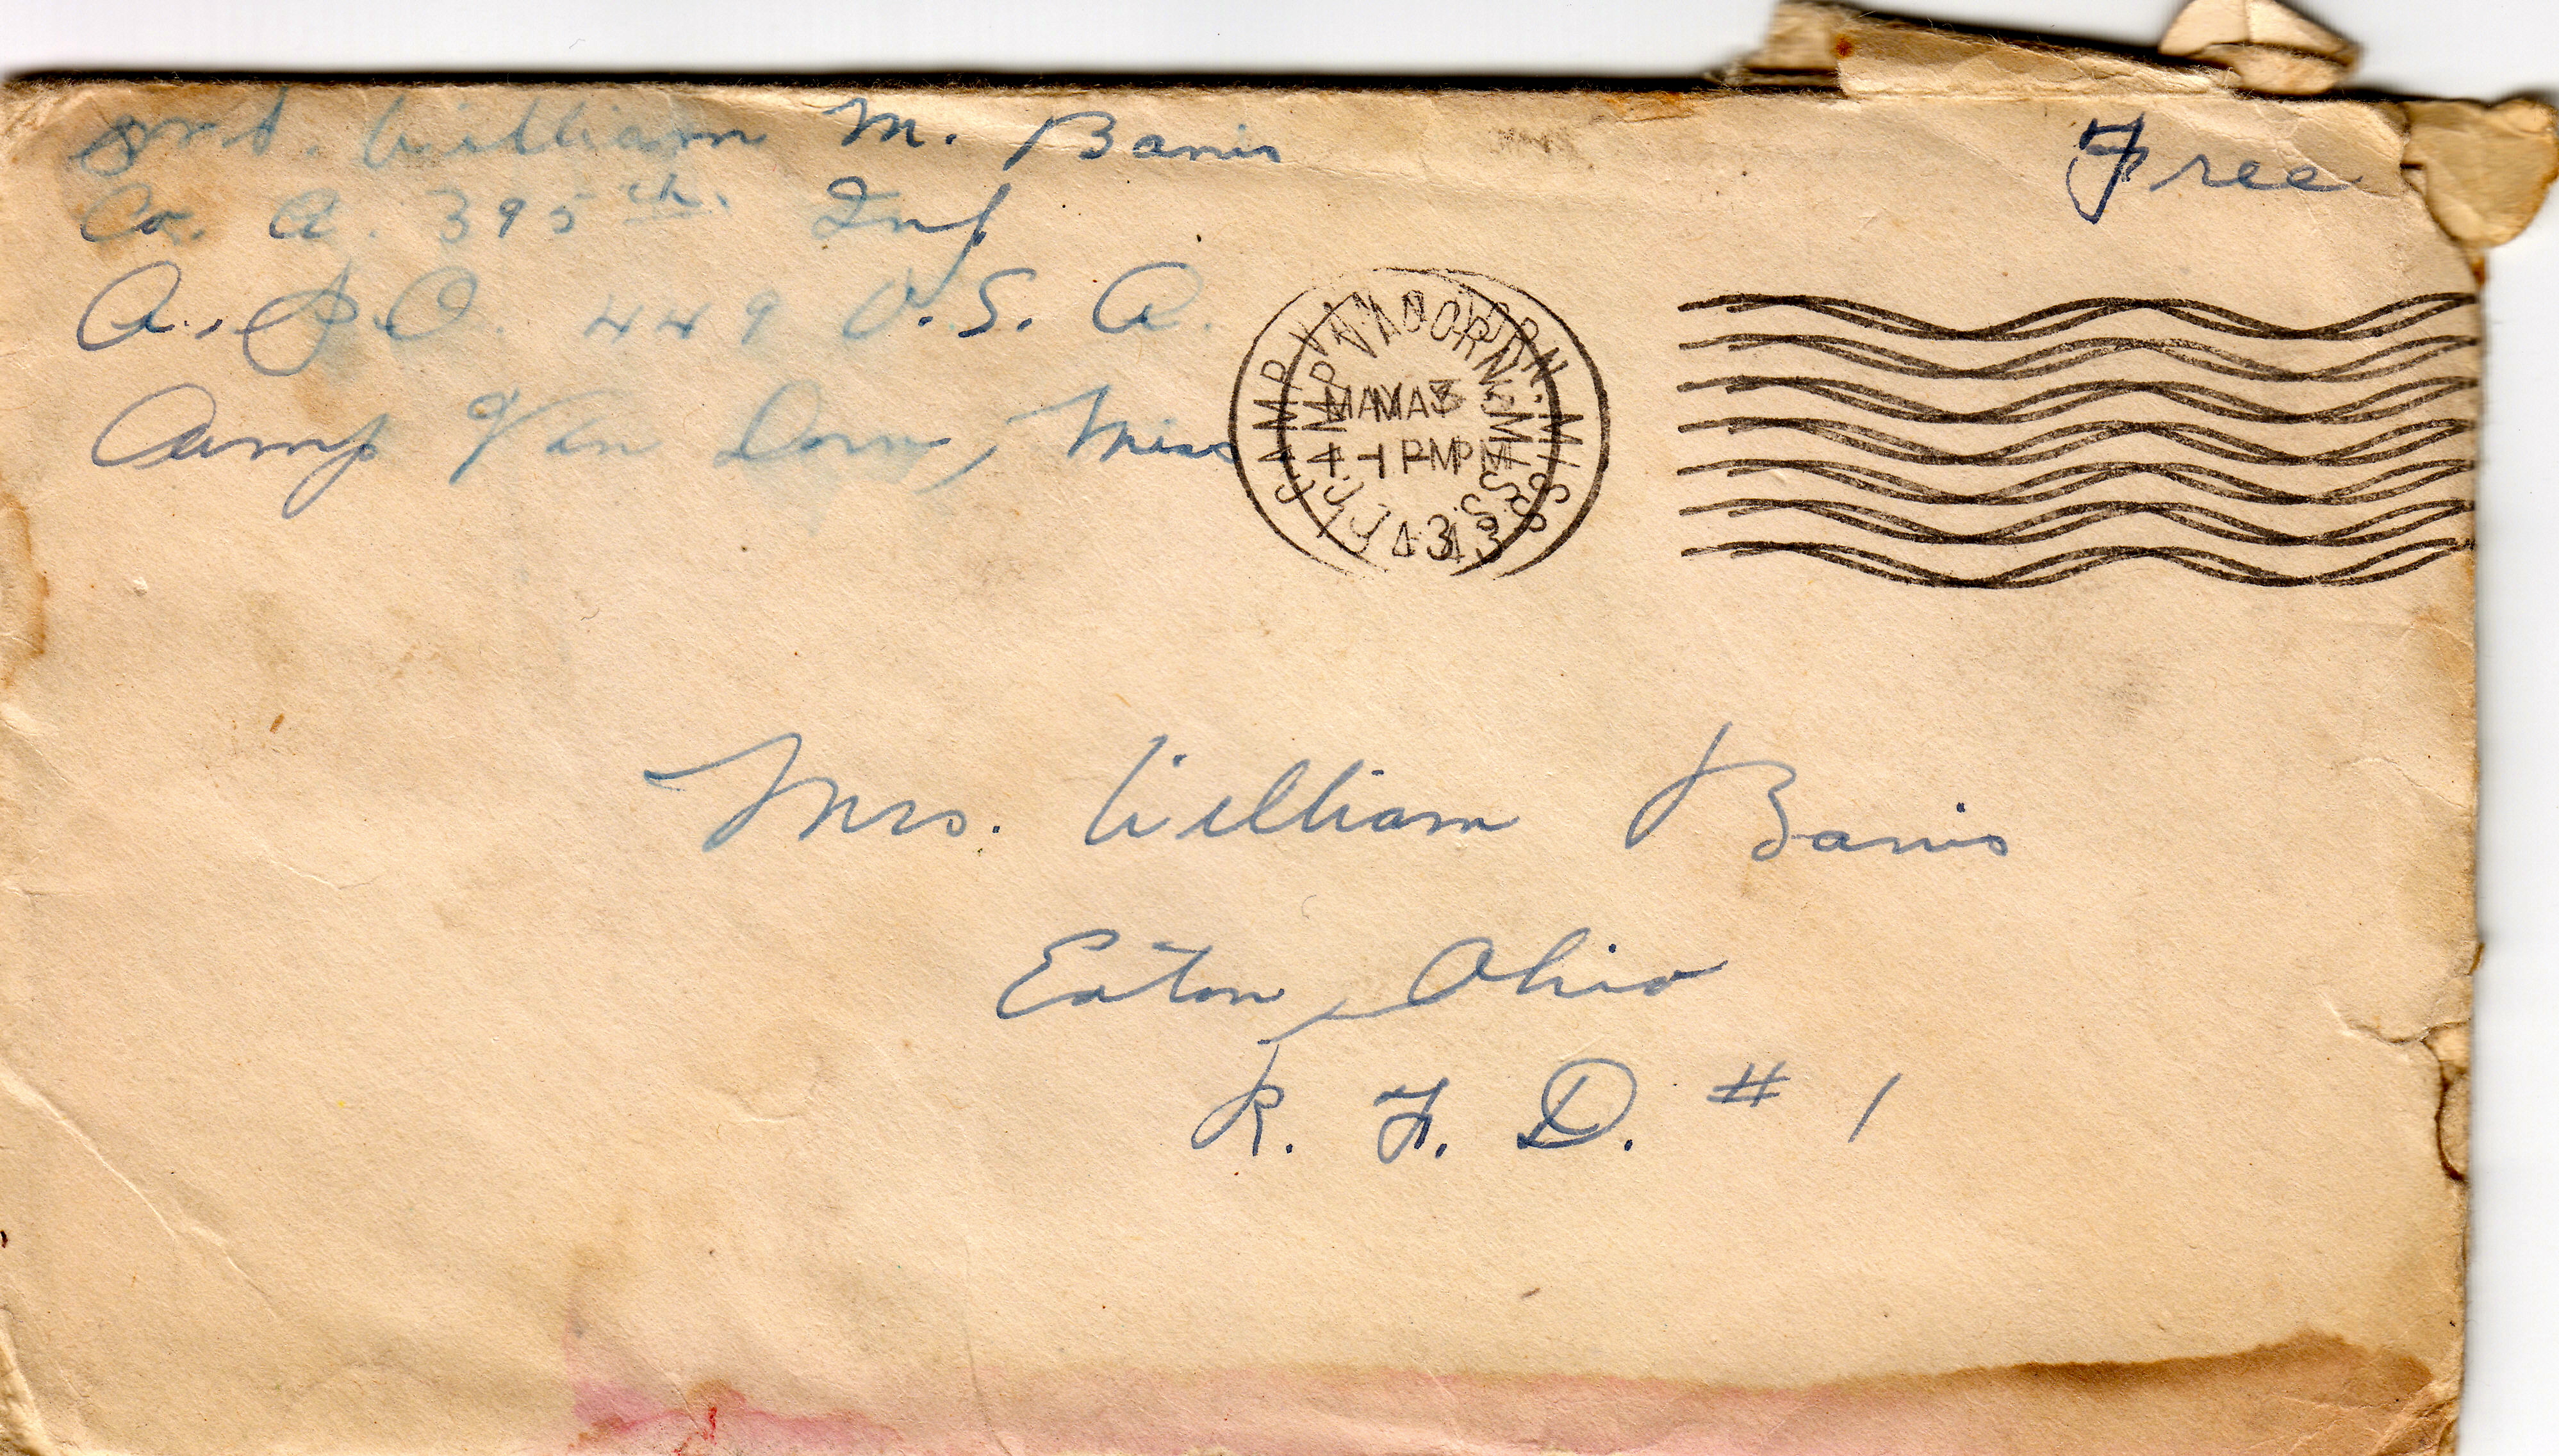 Pvt. William M. Banis
Co. A. 395th. Inf
A.P.O. 449 U.S.A.
Camp Van Dorn, Miss
Free
CAMP VAN DORN, MISS.
MAY 3
4-PM
43
Mrs. William Banis
Eaton, Ohio
R. F. D. # 1